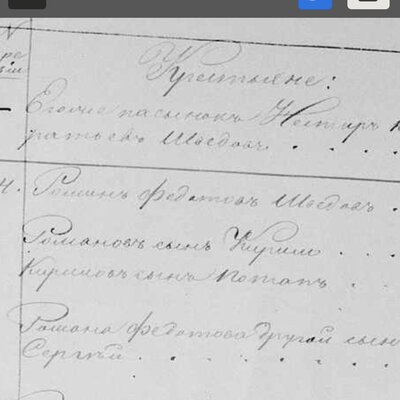 Крестьяне:
Егоже пасынокъ Несторъ
4. Романъ Федотовъ Шведовъ
Романовъ сынъ Кирило
Кириловъ сынъ Потапъ
Романа Федотова другой сынъ
Сергѣй